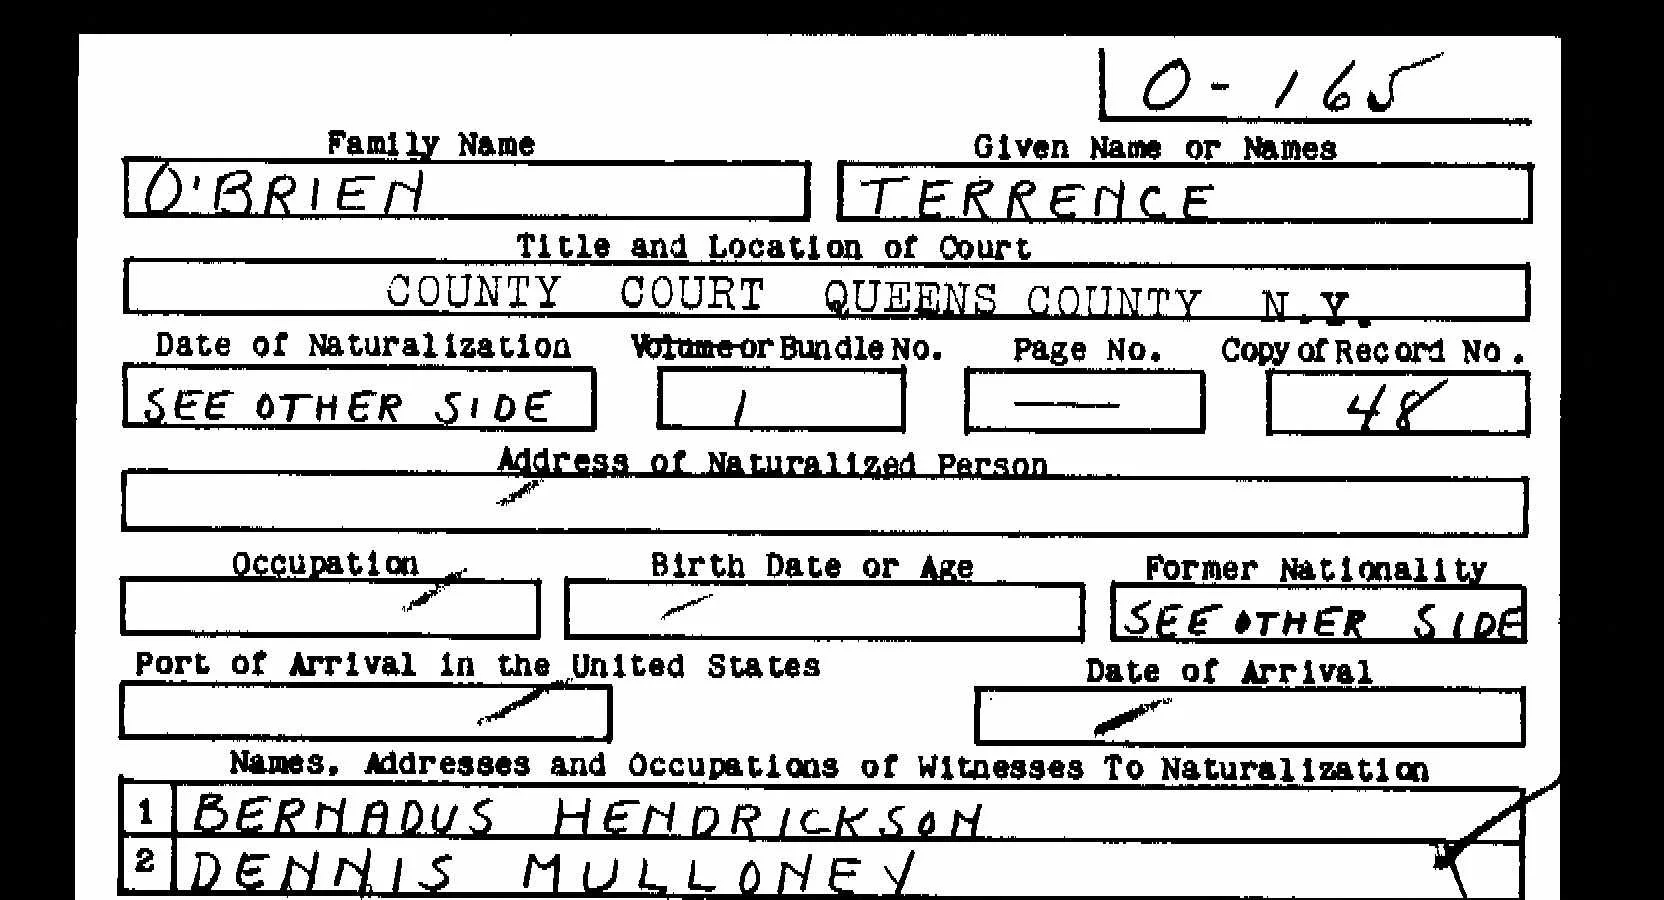 O-165
Family Name Given Name or Names
O'BRIEN TERRENCE
Title and Location of Court
COUNTY COURT QUEENS COUNTY N.Y.
Date of Naturalization Volume or Bundle No. Page No. Copy of Record No.
SEE OTHER SIDE 1 — 48
Address of Naturalized Person
Occupation Birth Date or Age Former Nationality
SEE OTHER SIDE
Port of Arrival in the United States Date of Arrival
Names, Addresses and Occupations of Witnesses To Naturalization
1 BERNADUS HENDRICKSON
2 DENNIS MULLONEY